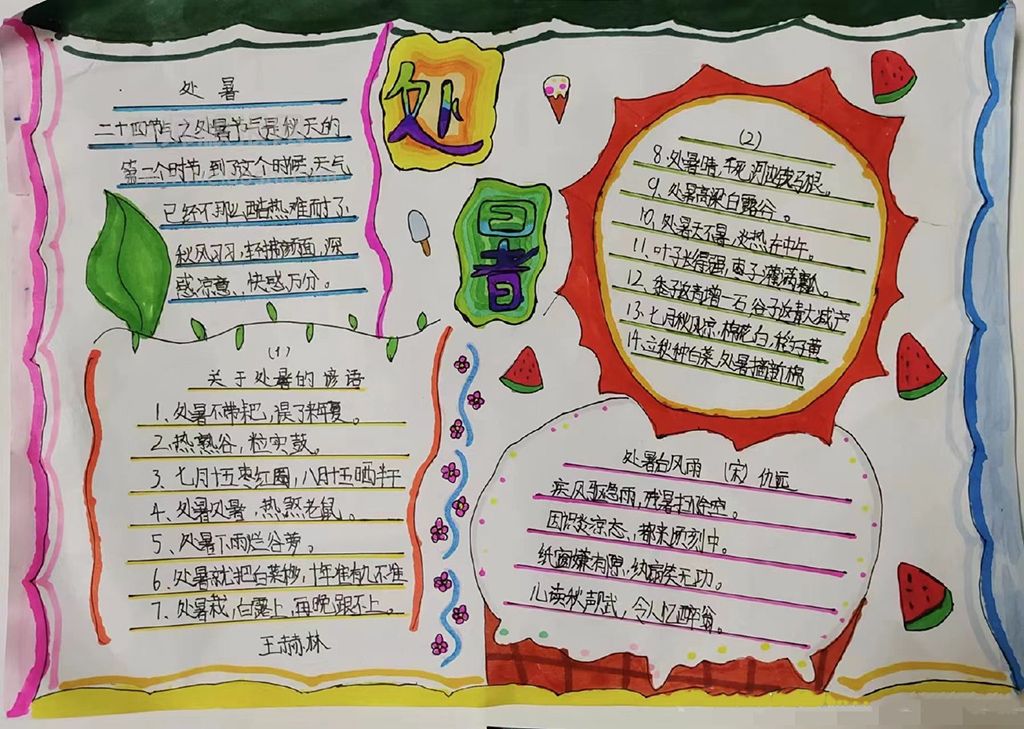 处暑
二十四节气之处暑节气是秋天的
第二个时节,到了这个时候,天气
已经不那么酷热难耐了
秋风习习,轻拂颜面,深
感凉意、快感万分。
处
暑
(1)
关于处暑的谚语
1、处暑不带耙,误了来年夏。
2、热熟谷,粒实鼓。
3、七月十五枣红圈,八月十五晒半干
4、处暑处暑,热煞老鼠。
5、处暑下雨烂谷萝。
6、处暑就把白菜移,十年准有九不准
7、处暑栽,白露上,再晚跟不上。
王赫林
(2)
8、处暑晴,干死河边铁马根。
9、处暑高粱白露谷。
10、处暑天不暑,炎热在中午。
11、叶子长得温,枣子灌满瓢。
12、黍子返青增一石,谷子返青大减产
13、七月秋风凉,棉花白,稻子黄
14、立秋种白菜,处暑摘新棉
处暑台风雨 (宋) 仇远
疾风驱急雨,残暑扫除空。
因识炎凉态,都来顷刻中。
纸窗嫌有隙,纨扇笑无功。
儿读秋声赋,令人忆醉翁。